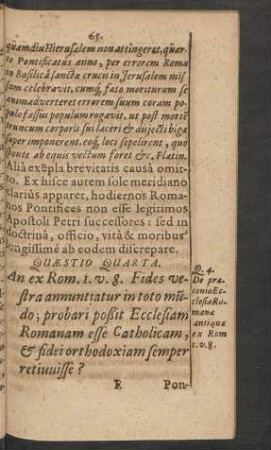 65.
quamdiu Hierusalem non attingeret, quar-
to Pontificatus anno, per errorem Roma
in Basilicâ sanctæ crucis in Jerusalem mis
sam celebravit, cumq́; fato moriturum se
animadverteret errorem suum coram po
pulo fassus populum rogavit, ut post morte
truncum corporis sui laceri & disjecti bigæ
super imponerent, eoq́; loci sepelirent, quo
sponte ab equis vectum foret &c, Platin.
Alia exẽpla brevitatis causâ omit-
to. Ex hisce autem sole meridiano
clarius apparet, hodiernos Roma-
nos Pontifices non esse legitimos
Apostoli Petri successores: sed in
doctrinâ, officio, vitâ & moribus
longissimè ab eodem discrepare.
QUÆSTIO QUARTA.
An ex Rom. 1. v. 8. Fides ve-
stra annuntiatur in toto mũ-
do; probari poßit Ecclesiam
Romanam esse Catholicam,
& fidei orthodoxiam semper
retinuisse?
Q. 4.
De præ-
conio Ec-
clesiæ Ro-
manæ
antiquæ
ex Rom
1. v. 8.
R Pon-